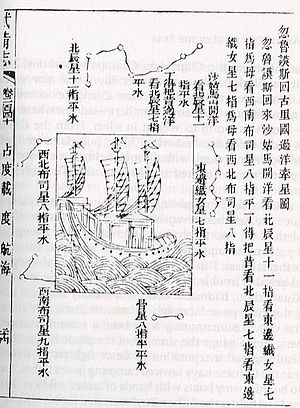 忽魯謨斯回古里國過洋牽星圖
忽魯謨斯回來沙姑馬開洋看北辰星十一指看東邊織女星七
指為母看西北布司星八指平丁得把昔看北辰星七指看東邊
織女星七指為母看西北布司星八指
沙姑馬山開洋
看北辰星十一
指平水
丁得把昔過洋
看北辰星七指
平水
北辰星十一指平水
東邊織女星七指平水
西北布司星八指平水
骨星八指半平水
西南布司星九指平水
武備志
卷二百四十
占度載
度
航海